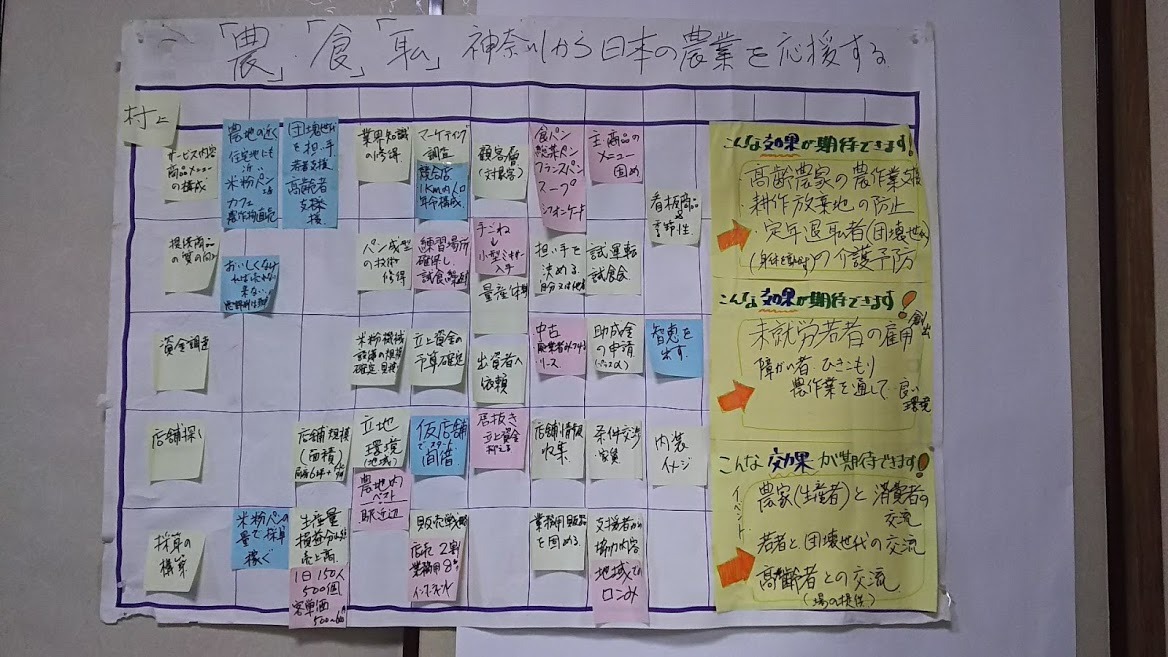 「農」「食」「私」 神奈川から日本の農業を応援する
村上
サービス内容
商品メニュー
の構成
農地の近く
住宅地にも
近い
米粉パン
カフェ
農作物直売
団塊世代
を担い手
若者支援
高齢者
支援
業界知識
の修得
マーケティング
調査
競合店
1km内人口
年令構成
顧客層
(対象客)
食パン
総菜パン
フランスパン
スープ
シフォンケーキ
主商品の
メニュー
固め
看板商品
&
季節性
提供商品
の質の向上
おいしくなけ
れば
来ない
パン成型
の技術
修得
練習場所
確保し
試食
手ごね
↓
小型ミキサー
入手
量産体制
担い手を
決める
試運転
試食会
資金調達
米粉機械
設備の
確定
立上資金の
予算確定
出資者へ
依頼
中古
リース
助成金
の申請
智恵を
出す
店舗探し
店舗規模
(面積)
立地
環境
(地域)
農地内
ベスト
駅近辺
仮店舗
でスタート
間借
居抜き
立上資金
抑える
店舗情報
収集
条件交渉
家賃
内装
イメージ
採算の
構築
米粉パンの
量で採算
稼ぐ
生産量
損益分岐
売上高
1日150人
500個
客単価
販売戦略
店売2割
業務用8
インターネット
業務用販品
を固める
支援者から
協力内容
地域で
口コミ
こんな効果が期待できます!
高齢農家の農作業支援
・耕作放棄地の防止
・定年退職者(団塊世代)
の介護予防
こんな効果が期待できます!
未就労若者の雇用創出
障がい者・ひきこもり
農作業を通して良い
環境
こんな効果が期待できます!
イベント
農家(生産者)と消費者の
交流
若者と団塊世代の交流
高齢者との交流
(場の提供)